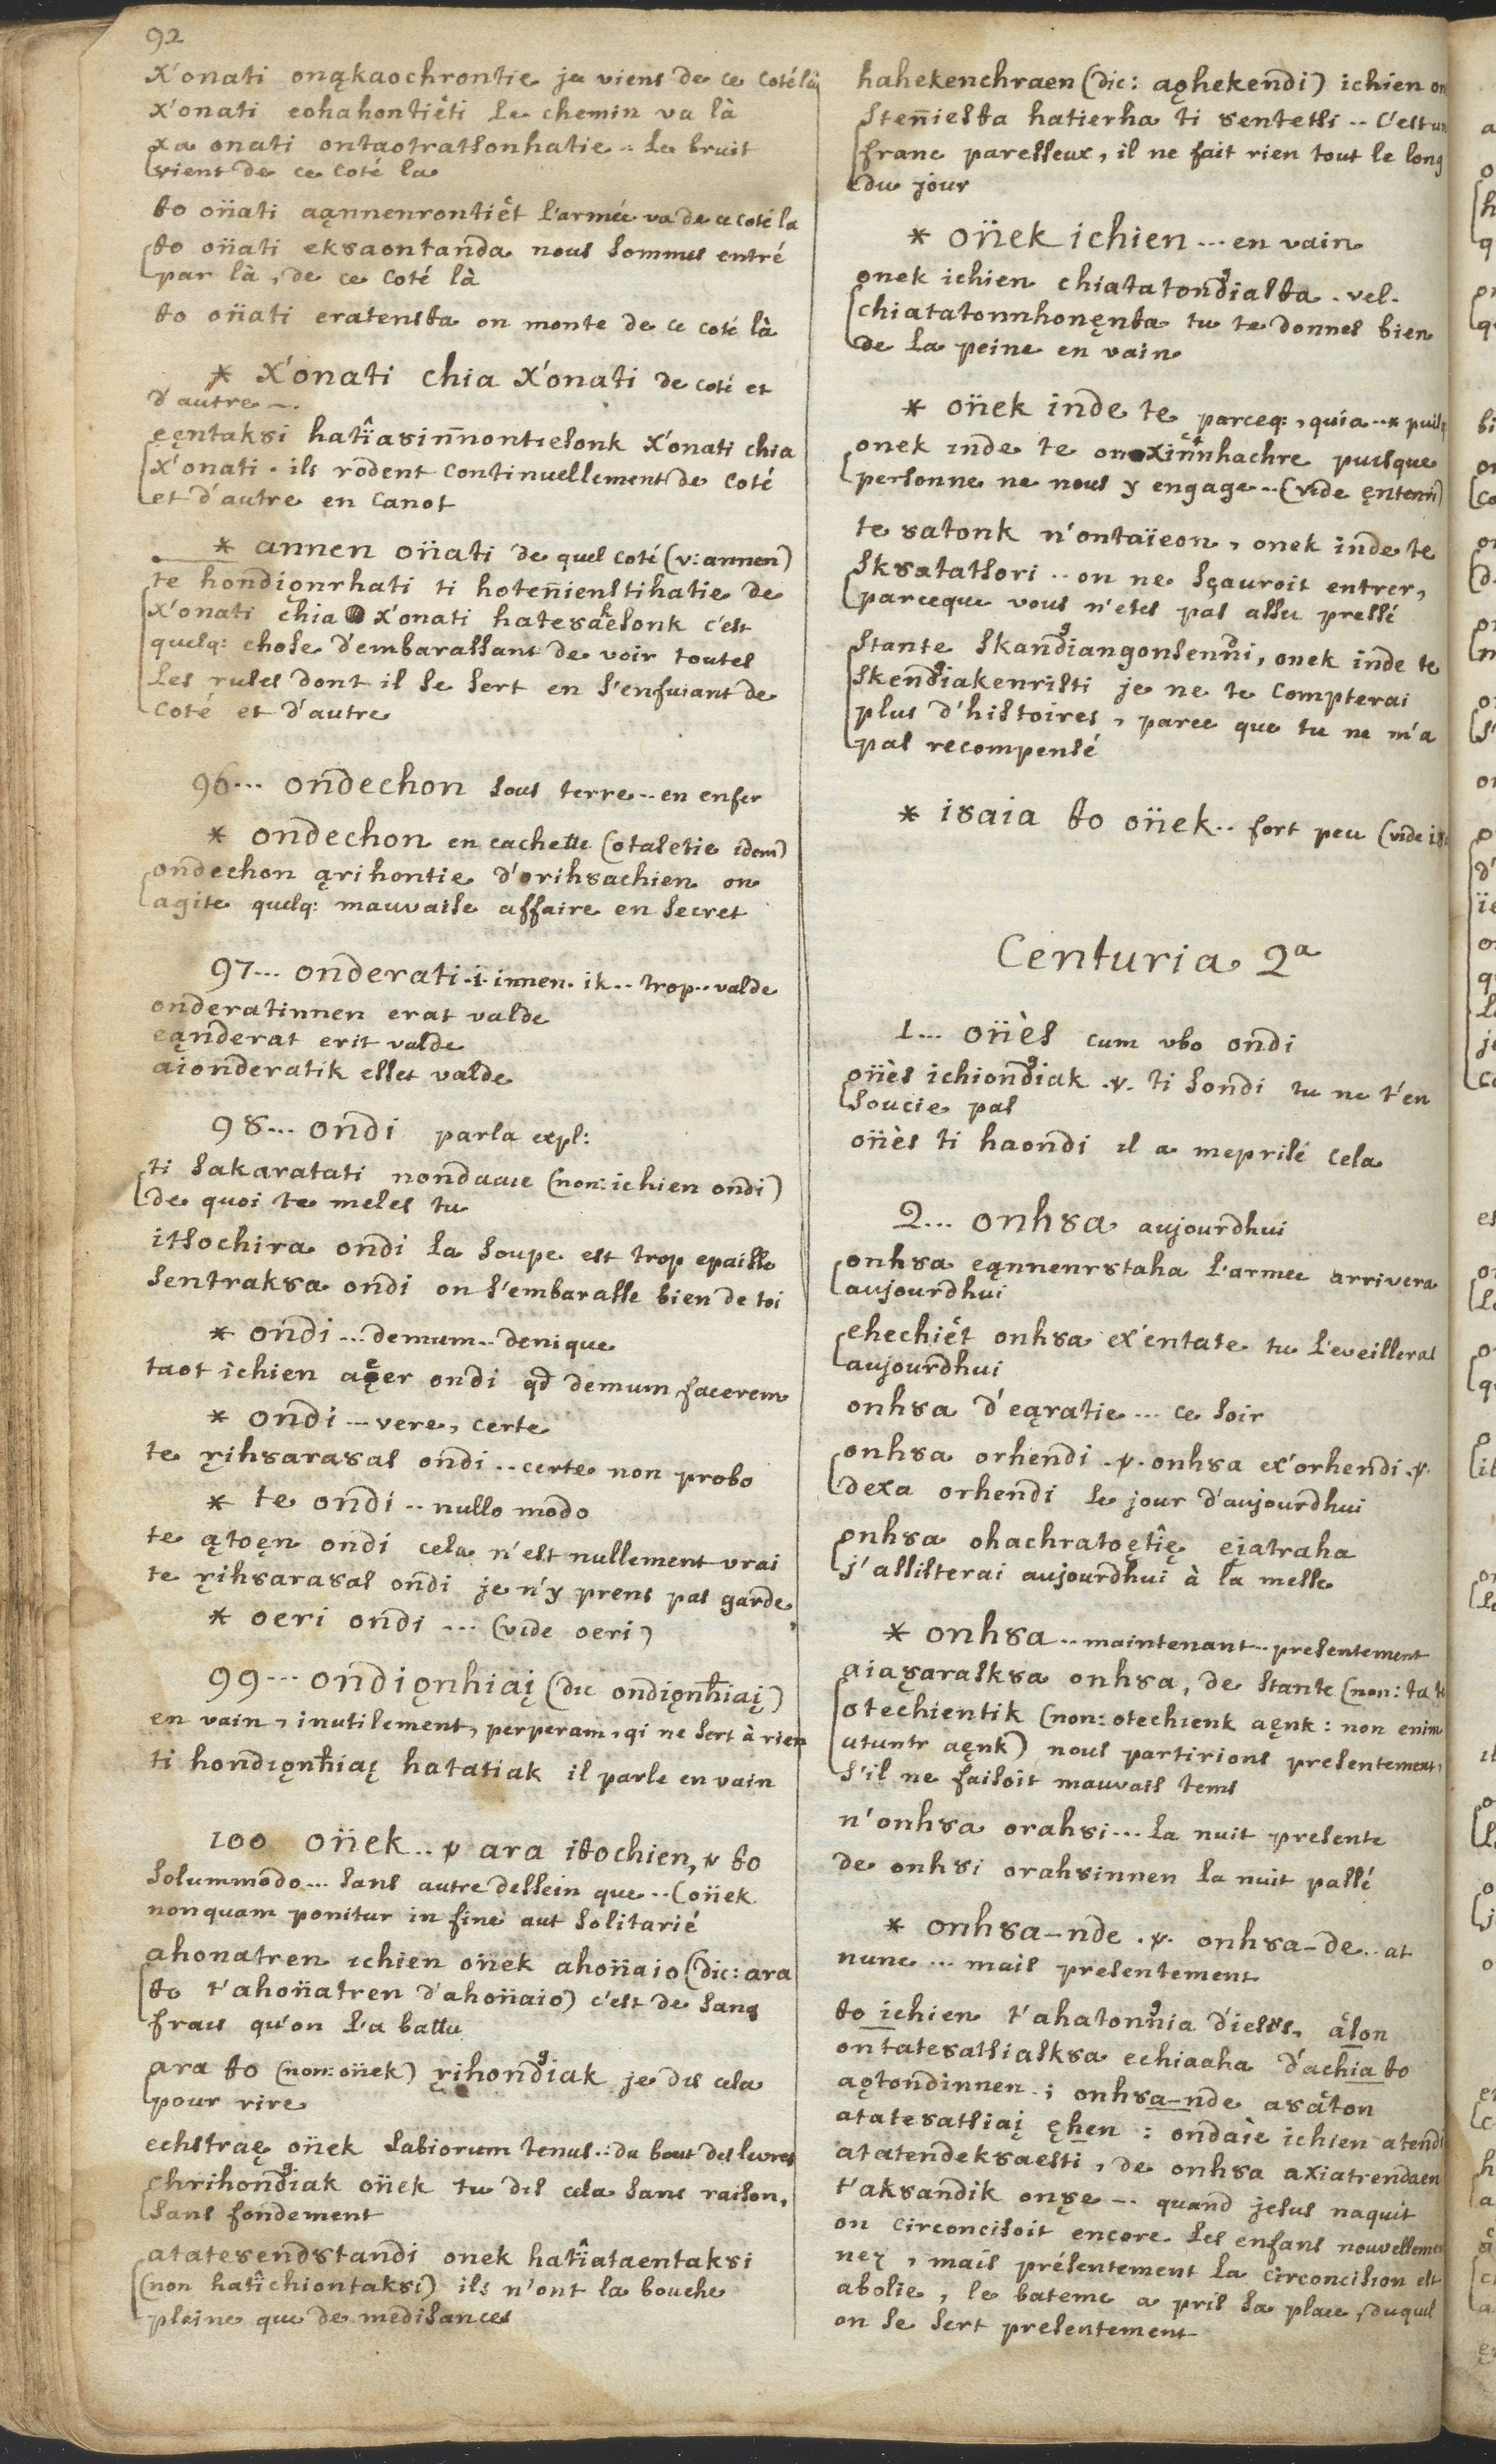 92
x'onati onąkaochrontie je viens de ce coté là
x'onati eohahontiëti le chemin va là
xa onati ontaotratsonhatie .. le bruit
vient de ce coté la
ȣo on̈ati aąnnenrontiët l'armée va de ce coté la
ȣo on̈ati ekȣaontanda nous sommes entré
par là, de ce coté là
ȣo on̈ati eratensȣa on monte de ce coté là
* x'onati chia x'onati de coté et
d'autre ...
ęęntakȣi hatïaȣinnontiesonk x'onati chia
x'onati . ils rodent continuellement de coté
et d'autre en canot
* annen on̈ati de quel coté (v: annen)
te hondiǫnrhati ti hoteñienstihatie de
x'onati chia x'onati hateȣakesonk c'est
quelq: chose d'embarassant de voir toutes
les ruses dont il se sert en s'enfuiant de
coté et d'autre
96... ondechon sous terre .. en enfer
* ondechon en cachette (otasetie idem)
ondechon ąrihontie d'orihȣachien on
agite quelq: mauvaise affaire en secret
97... onderati .i. innen. ik .. trop .. valde
onderatinnen erat valde
eąnderat erit valde
aionderatik esset valde
98... ondi par la expl:
ti sakaratati nondaaie (non: ichien ondi)
de quoi te meles tu
itsochira ondi la soupe est trop epaisse
sentrakȣa ondi on s'embarasse bien de toi
* ondi ... demum .. denique
taot ichien aęer ondi qd demum facerem
* ondi ... vere, certe
te ŗihȣaraȣas ondi .. certe non probo
* te ondi .. nullo modo
te ątoęn ondi cela n'est nullement vrai
te ŗihȣaraȣas ondi je n'y prens pas garde
* oeri ondi ... (vide oeri)
99... ondiǫnhiaį (dic ondiǫnħiaį)
en vain, inutilement, perperam, qi ne sert à rien
ti hondiǫnħiaį hatatiak il parle en vain
100 on̈ek .. v ara iȣochien, v ȣo
solummodo ... sans autre dessein que .. (on̈ek
nonquam ponitur in fine aut solitarié
ahonatren ichien on̈ek ahon̈aio (dic: ara
ȣo t'ahon̈atren d'ahon̈aio) c'est de sang
frais qu'on l'a battu
ara ȣo (non: on̈ek) ŗihondgiak je dis cela
pour rire
echȣtraę on̈ek labiorum tenus .. du bout des levres
chrihondgiak on̈ek tu dis cela sans raison,
sans fondement
atatesendȣtandi onek hatïataentakȣi
(non hatïchiontakȣi) ils n'ont la bouche
pleine que de medisances
hahekenchraen (dic: aǫhekendi) ichien on
steñiesȣa hatierha ti ȣentetsi .. c'est un
franc paresseux, il ne fait rien tout le long
du jour
* on̈ek ichien ... en vain
onek ichien chiatatondgiasȣa . vel .
chiatatonnhonęnȣa tu te donnes bien
de la peine en vain
* on̈ek inde te parceq:, quia .. * puisq
onek inde te onxinnhachre puisque
personne ne nous y engage .. (vide ęntenri)
te ȣatonk n'ontaïeon, onek inde te
skȣatatsori .. on ne sçauroit entrer,
parceque vous n'etes pas assez pressé
stante skandgiangonsenni, onek inde te
skendgiakenristi je ne te compterai
plus d'histoires, parce que tu ne m'a
pas recompensé
* iȣaia ȣo on̈ek .. fort peu (vide
Centuria 2a
1... on̈ès cum vbo ondi
on̈ès ichiondgiak .v. ti sondi tu ne t'en
soucie pas
on̈ès ti haondi il a meprisé cela
2... onhȣa aujourdhui
onhȣa eąnnenrȣtaha l'armee arrivera
aujourdhui
ehechiët onhȣa ex'entate tu l'eveilleras
aujourdhui
onhȣa d'eąratie ... ce soir
onhȣa orhendi .v. onhȣa ex'orhendi .v.
dexa orhendi le jour d'aujourdhui
onhȣa ohachratoętię ęiatraha
j'assisterai aujourdhui à la messe
* onhȣa .. maintenant .. presentement
aiaȣaraskȣa onhȣa, de stante (non: ta te
otechientik (non: otechienk aęnk: non enim
utuntr aęnk) nous partirions presentement,
s'il ne faisoit mauvais tems
n'onhȣa orahȣi ... la nuit presente
de onhȣi orahȣinnen la nuit passé
* onhȣa-nde .v. onhȣa-de .. at
nunc ... mais presentement
ȣo ichien t'ahatonnia d'iesȣs, ason
ontateȣatsiaskȣa echiaaha d'achia ȣo
aǫtondinnen; onhȣa-nde aȣäton
atateȣatsiaį ęhen: ondaie ichien atendi
atatendekȣaesti, de onhȣa axiatrendaen
t'akȣandik onȣe ... quand jesus naquit
on circoncisoit encore les enfans nouvellement
nez, mais présentement la circoncision est
abolie, le bateme a pris sa place, duquel
on se sert presentement